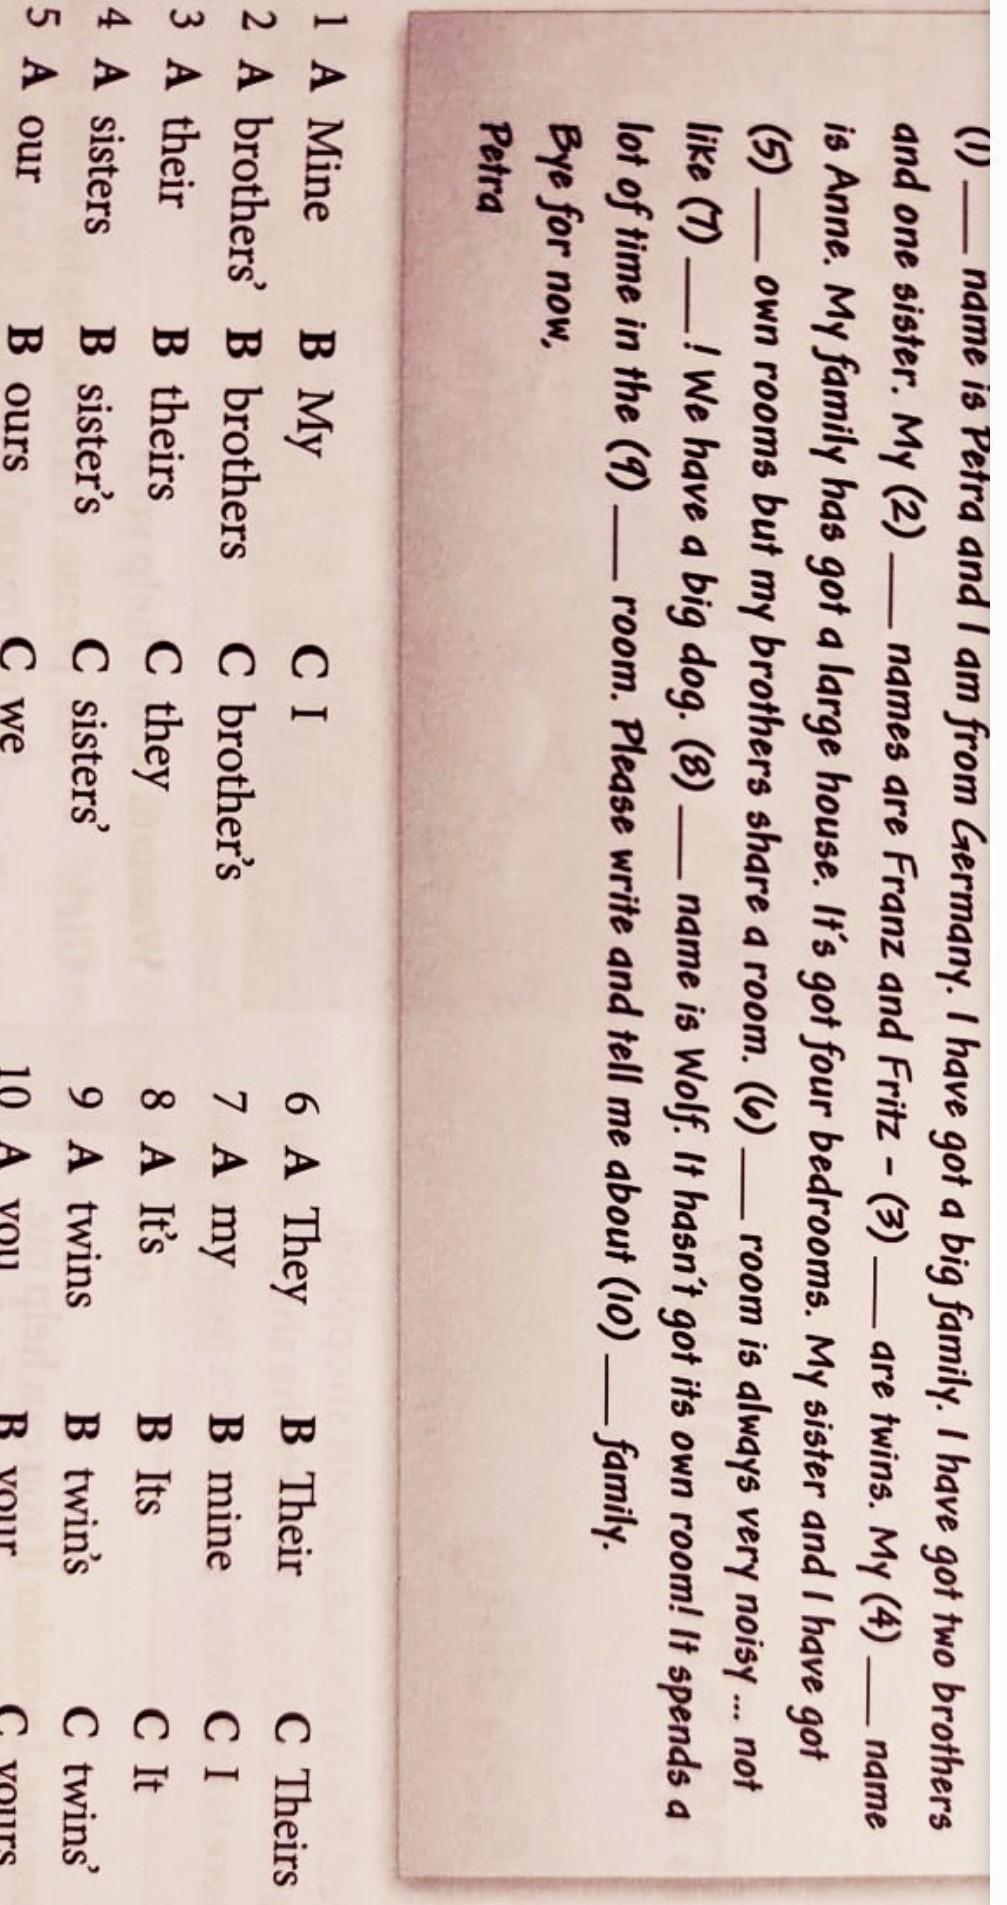 (1) ___ name is Petra and I am from Germany. I have got a big family. I have got two brothers
and one sister. My (2) ___ names are Franz and Fritz – (3) ___ are twins. My (4) ___ name
is Anne. My family has got a large house. It's got four bedrooms. My sister and I have got
(5) ___ own rooms but my brothers share a room. (6) ___ room is always very noisy ... not
like (7) ___! We have a big dog. (8) ___ name is Wolf. It hasn't got its own room! It spends a
lot of time in the (9) ___ room. Please write and tell me about (10) ___ family.
Bye for now,
Petra
1 A Mine B My C I
2 A brothers' B brothers C brother's
3 A their B theirs C they
4 A sisters B sister's C sisters'
5 A our B ours C we
6 A They B Their C Theirs
7 A my B mine C I
8 A It's B Its C It
9 A twins B twin's C twins'
10 A you B your C yours